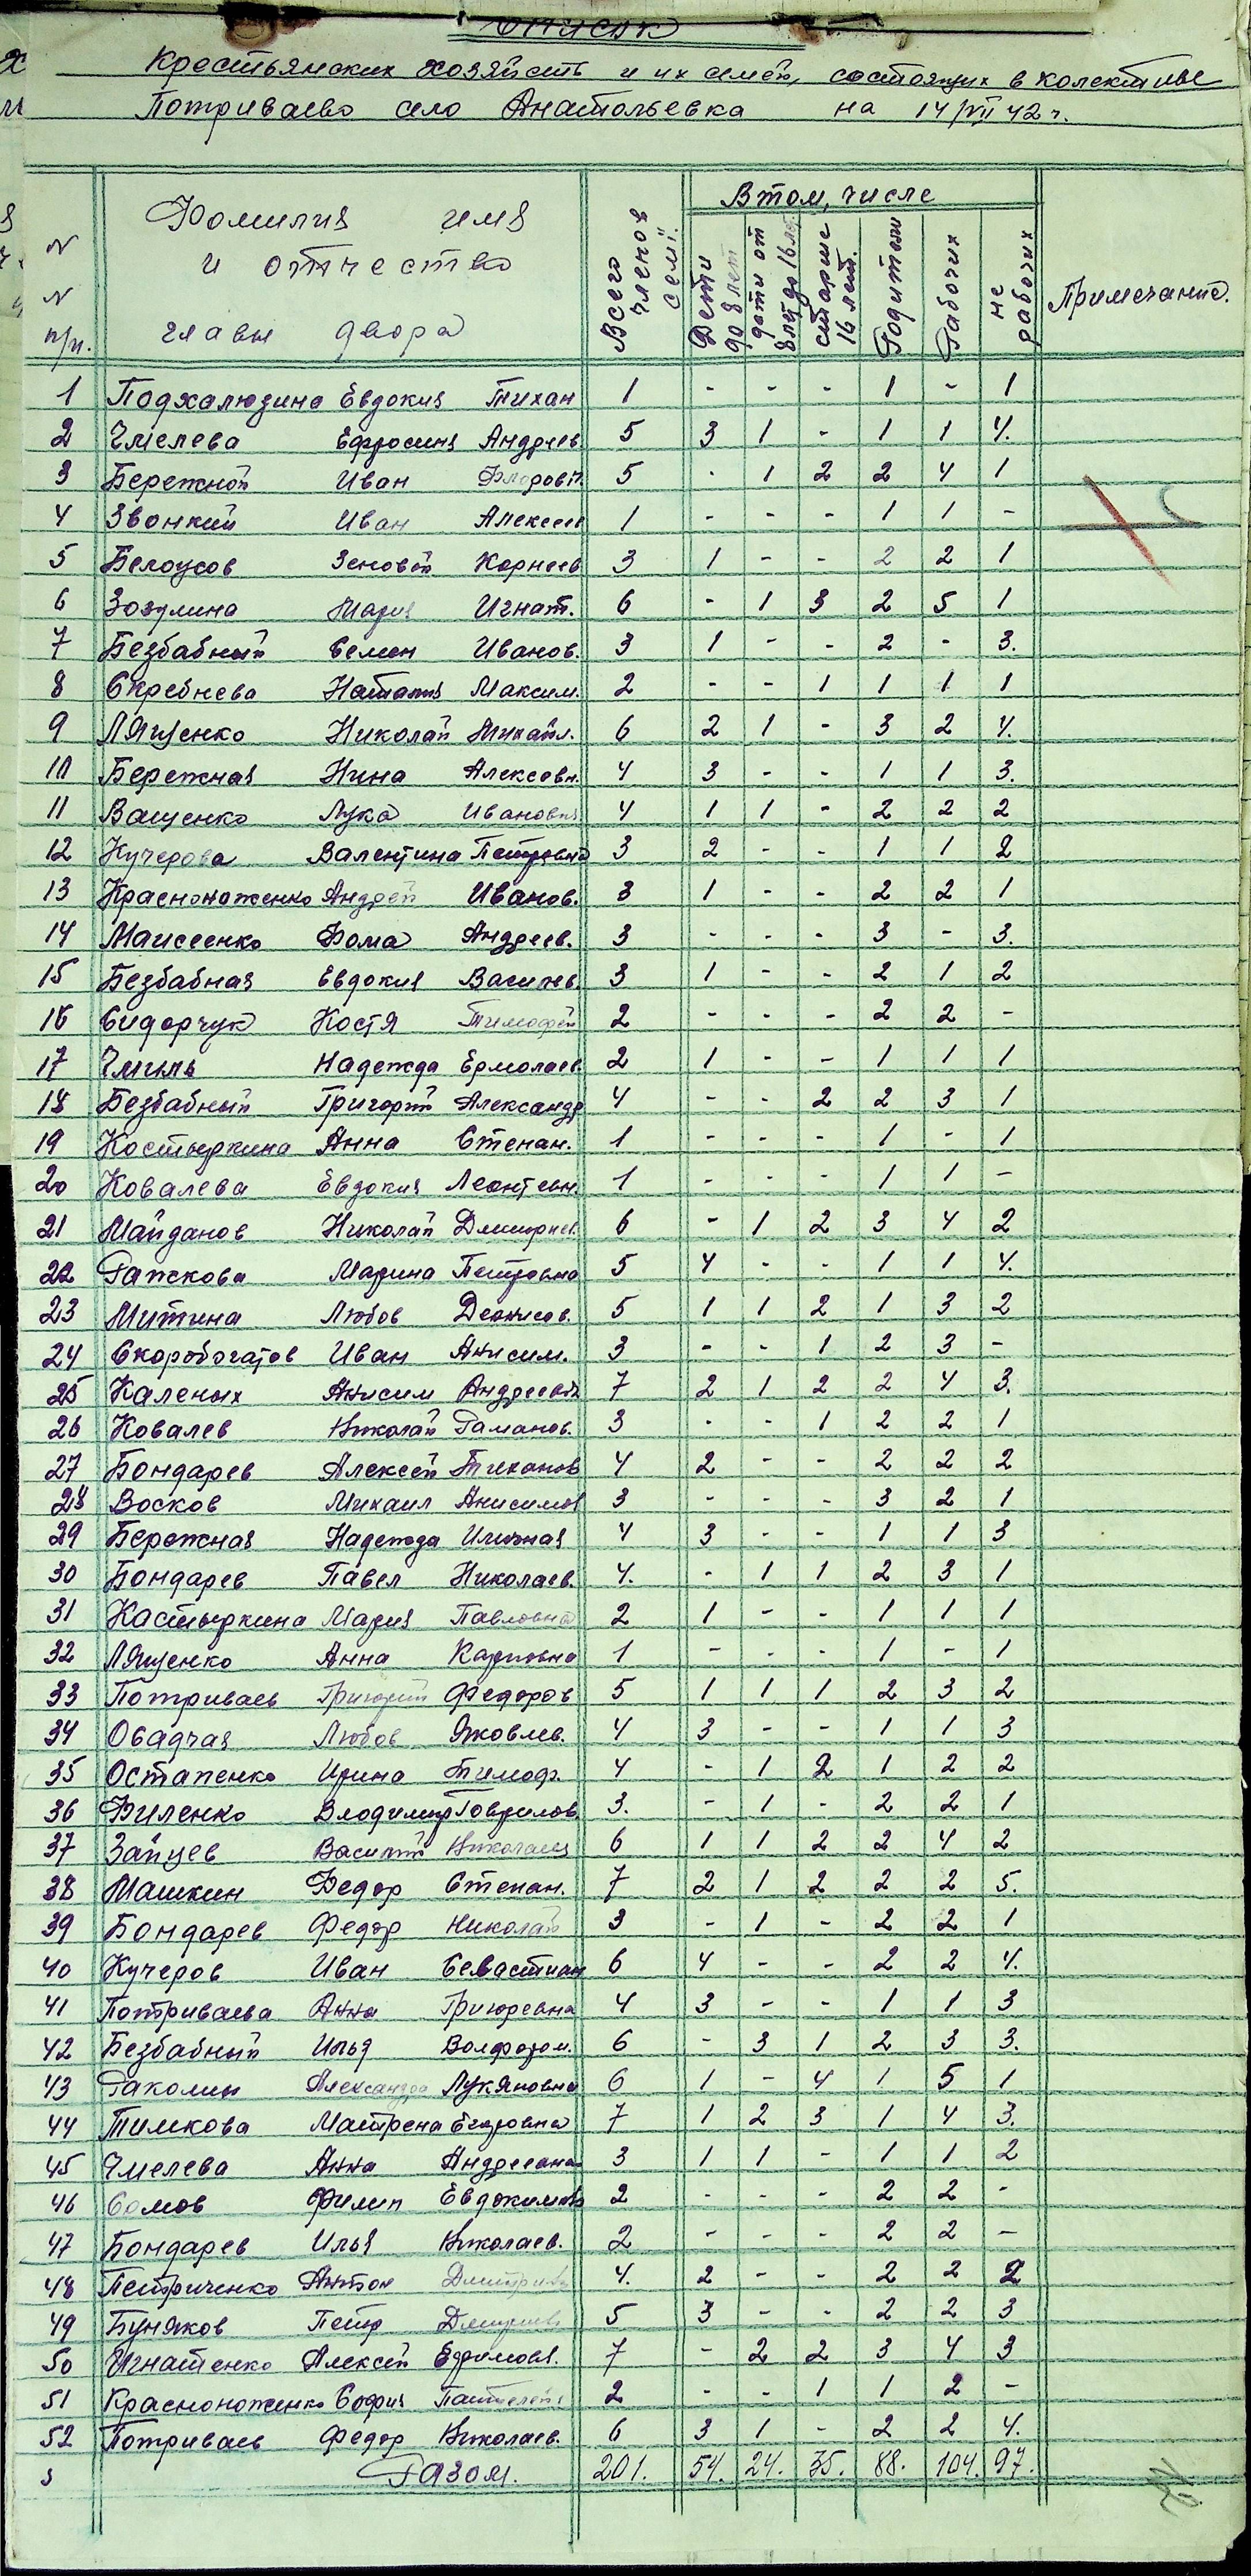 Список
Крестьянских хозяйств и их семей, состоящих в колективе
Потриваево село Анатольевка на 14/VII 42 г.
N N п/п. Фомилия имя и отчество главы двора Всего членов семі. В том, числе Примечание.
Дети до 8 лет дети от 8 лет до 16 лет старше 16 лет. Родители Рабочих не рабочих
1 Подхалюзина Евдокия Тихан 1 - - - 1 - 1
2 Чмелева Ефросиня Андреев 5 3 1 - 1 1 4.
3 Бережной Иван 5 - 1 2 2 4 1
4 Звонкий Иван Алексеев 1 - - - 1 1 -
5 Белоусов Зеновей Корнеев 3 1 - - 2 2 1
6 Зозулина Мария Игнат. 6 - 1 3 2 5 1
7 Безбабный Семен Иванов. 3 1 - - 2 - 3.
8 Скребнева Наталия Максим. 2 - - 1 1 1 1
9 Лященко Николай Михайл. 6 2 1 - 3 2 4.
10 Бережная Нина Алексевн. 4 3 - - 1 1 3.
11 Ващенко Лука Иванович 4 1 1 - 2 2 2
12 Кучерова Валентина Петровна 3 2 - - 1 1 2
13 Красноноженко Андрей Иванов. 3 1 - - 2 2 1
14 Маисеенко Фома Андреев. 3 - - - 3 - 3.
15 Безбабная Евдокия Василев. 3 1 - - 2 1 2
16 Сидорчук Костя Тимофей 2 - - - 2 2 -
17 Чмиль Надежда Ермолаев 2 1 - - 1 1 1
18 Безбабный Григорий Александр 4 - - 2 2 3 1
19 Костыркина Анна Степан. 1 - - - 1 - 1
20 Ковалева Евдокия Леонтевн. 1 - - - 1 1 -
21 Майданов Николай Дмитриев. 6 - 1 2 3 4 2
22 Рапскова Марина Петровна 5 4 - - 1 1 4.
23 Митина Любов Деонисов. 5 1 1 2 1 3 2
24 Скоробогатов Иван Анисим. 3 - - 1 2 3 -
25 Каленых Анисим Андреевич 7 2 1 2 2 4 3.
26 Ковалев Николай Раманов. 3 - - 1 2 2 1
27 Бондарев Алексей Тиханов 4 2 - - 2 2 2
28 Восков Михаил Анисимов 3 - - - 3 2 1
29 Бережная Надежда 4 3 - - 1 1 3
30 Бондарев Павел Николаев. 4. - 1 1 2 3 1
31 Кастыркина Мария Павловна 2 1 - - 1 1 1
32 Лященко Анна Карповна 1 - - - 1 - 1
33 Потриваев Григорий Федоров 5 1 1 1 2 3 2
34 Овадчая Любов Яковлев. 4 3 - - 1 1 3
35 Остапенко Ирина Тимоф. 4 - 1 2 1 2 2
36 Филенко Владимир Гаврилов. 3. - 1 - 2 2 1
37 Зайцев Василий Николаев 6 1 1 2 2 4 2
38 Машкин Федор Степан. 7 2 1 2 2 2 5.
39 Бондарев Федор Николай 3 - 1 - 2 2 1
40 Кучеров Иван Севастиан 6 4 - - 2 2 4.
41 Потриваева Анна Григоревна 4 3 - - 1 1 3
42 Безбабный Илья 6 - 3 1 2 3 3.
43 Раколин Александра Лукяновна 6 1 - 4 1 5 1
44 Тимкова Матрена Егоровна 7 1 2 3 1 4 3.
45 Чмелева Анна Андреевна 3 1 1 - 1 1 2
46 Сомов Филип Евдокимов 2 - - - 2 2 -
47 Бондарев Илья Николаев. 2 - - - 2 2 -
48 Петриченко Антон Дмитриев 4. 2 - - 2 2 2
49 Буняков Петр Дмитриев 5 3 - - 2 2 3
50 Игнатенко Алексей Ефимовя. 7 - 2 2 3 4 3
51 Красноноженко София Пантелей 2 - - 1 1 2 -
52 Потриваев Федор Николаев. 6 3 1 - 2 2 4.
Разом. 201. 54. 24. 35. 88. 104. 97.